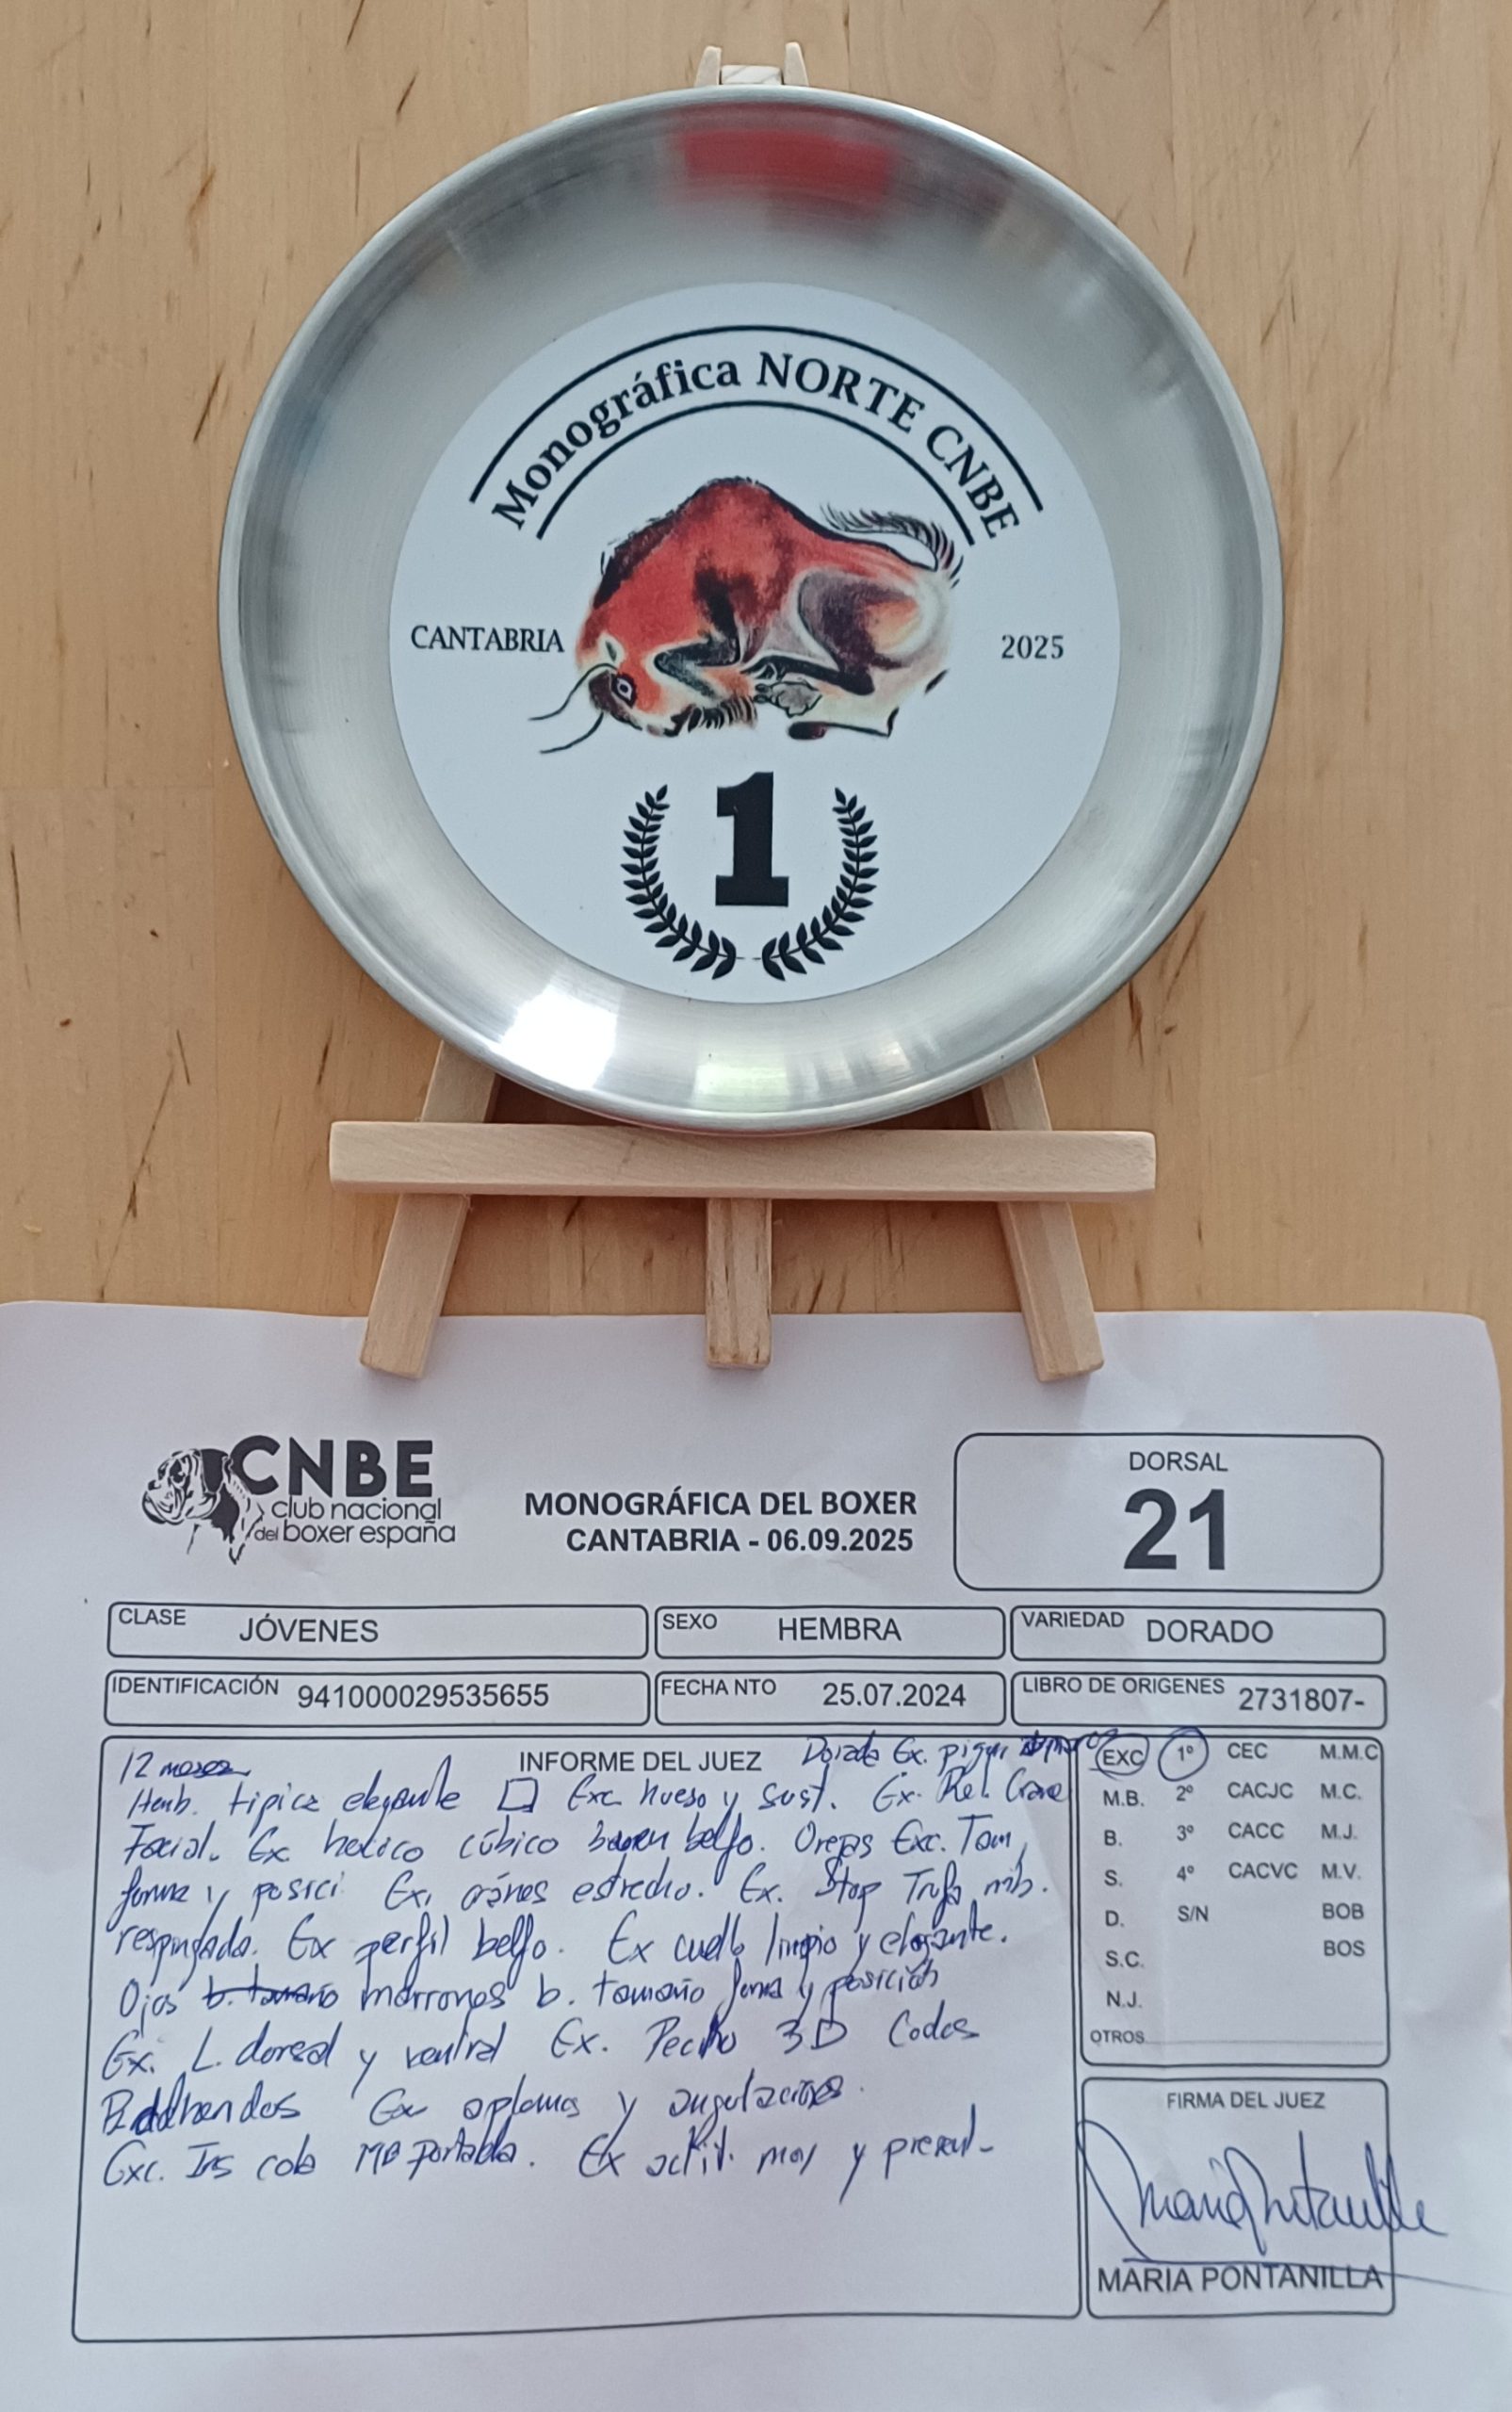 Monográfica NORTE CNBE
CANTABRIA
2025
1
CNBE
club nacional
del boxer españa
MONOGRÁFICA DEL BOXER
CANTABRIA - 06.09.2025
DORSAL
21
CLASE JÓVENES
SEXO HEMBRA
VARIEDAD DORADO
IDENTIFICACIÓN 941000029535655
FECHA NTO 25.07.2024
LIBRO DE ORIGENES 2731807-
INFORME DEL JUEZ
12 meses Dorada Ex.
Hemb. típica elegante Exc hueso y sust. Ex. Rel. Craneo
Facial. Ex hocico cúbico buen belfo. Orejas Exc. Tam,
forma y posici Ex. estrecho. Ex. Stop Trufa
respingada. Ex perfil belfo. Ex cuello limpio y elegante.
Ojos marrones b. tamaño forma y posición
Ex. L. dorsal y ventral Ex. Pecho 3D Codos
Ex aplomos y angulaciones.
Exc. Ins cola MB portada. Ex actit. mov y present-
EXC 1º CEC M.M.C
M.B. 2º CACJC M.C.
B. 3º CACC M.J.
S. 4º CACVC M.V.
D. S/N BOB
S.C. BOS
N.J.
OTROS
FIRMA DEL JUEZ
MARIA PONTANILLA